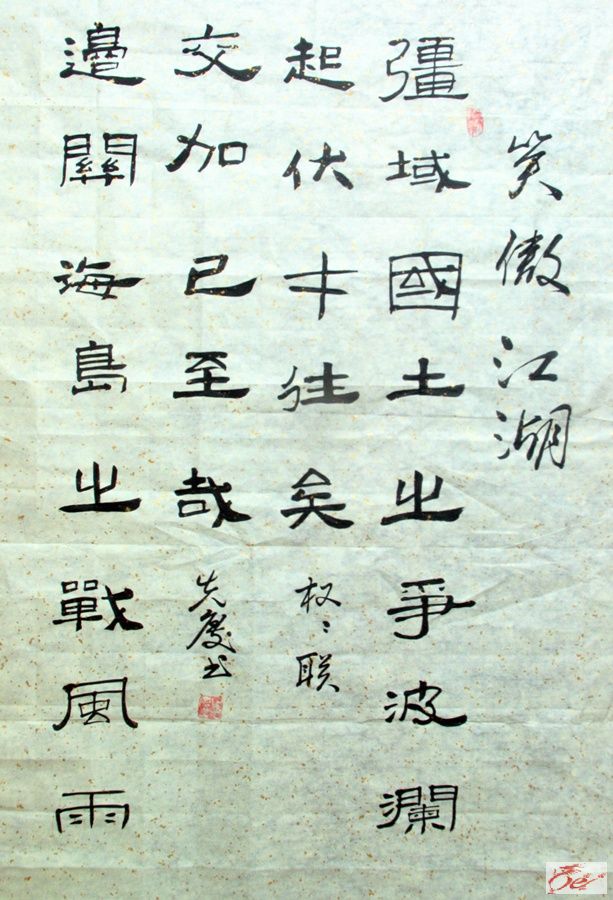 笑傲江湖
彊域國土之爭波瀾
起伏才往矣 权〻联
邊關海島之戰風雨
交加已至哉 先慶书